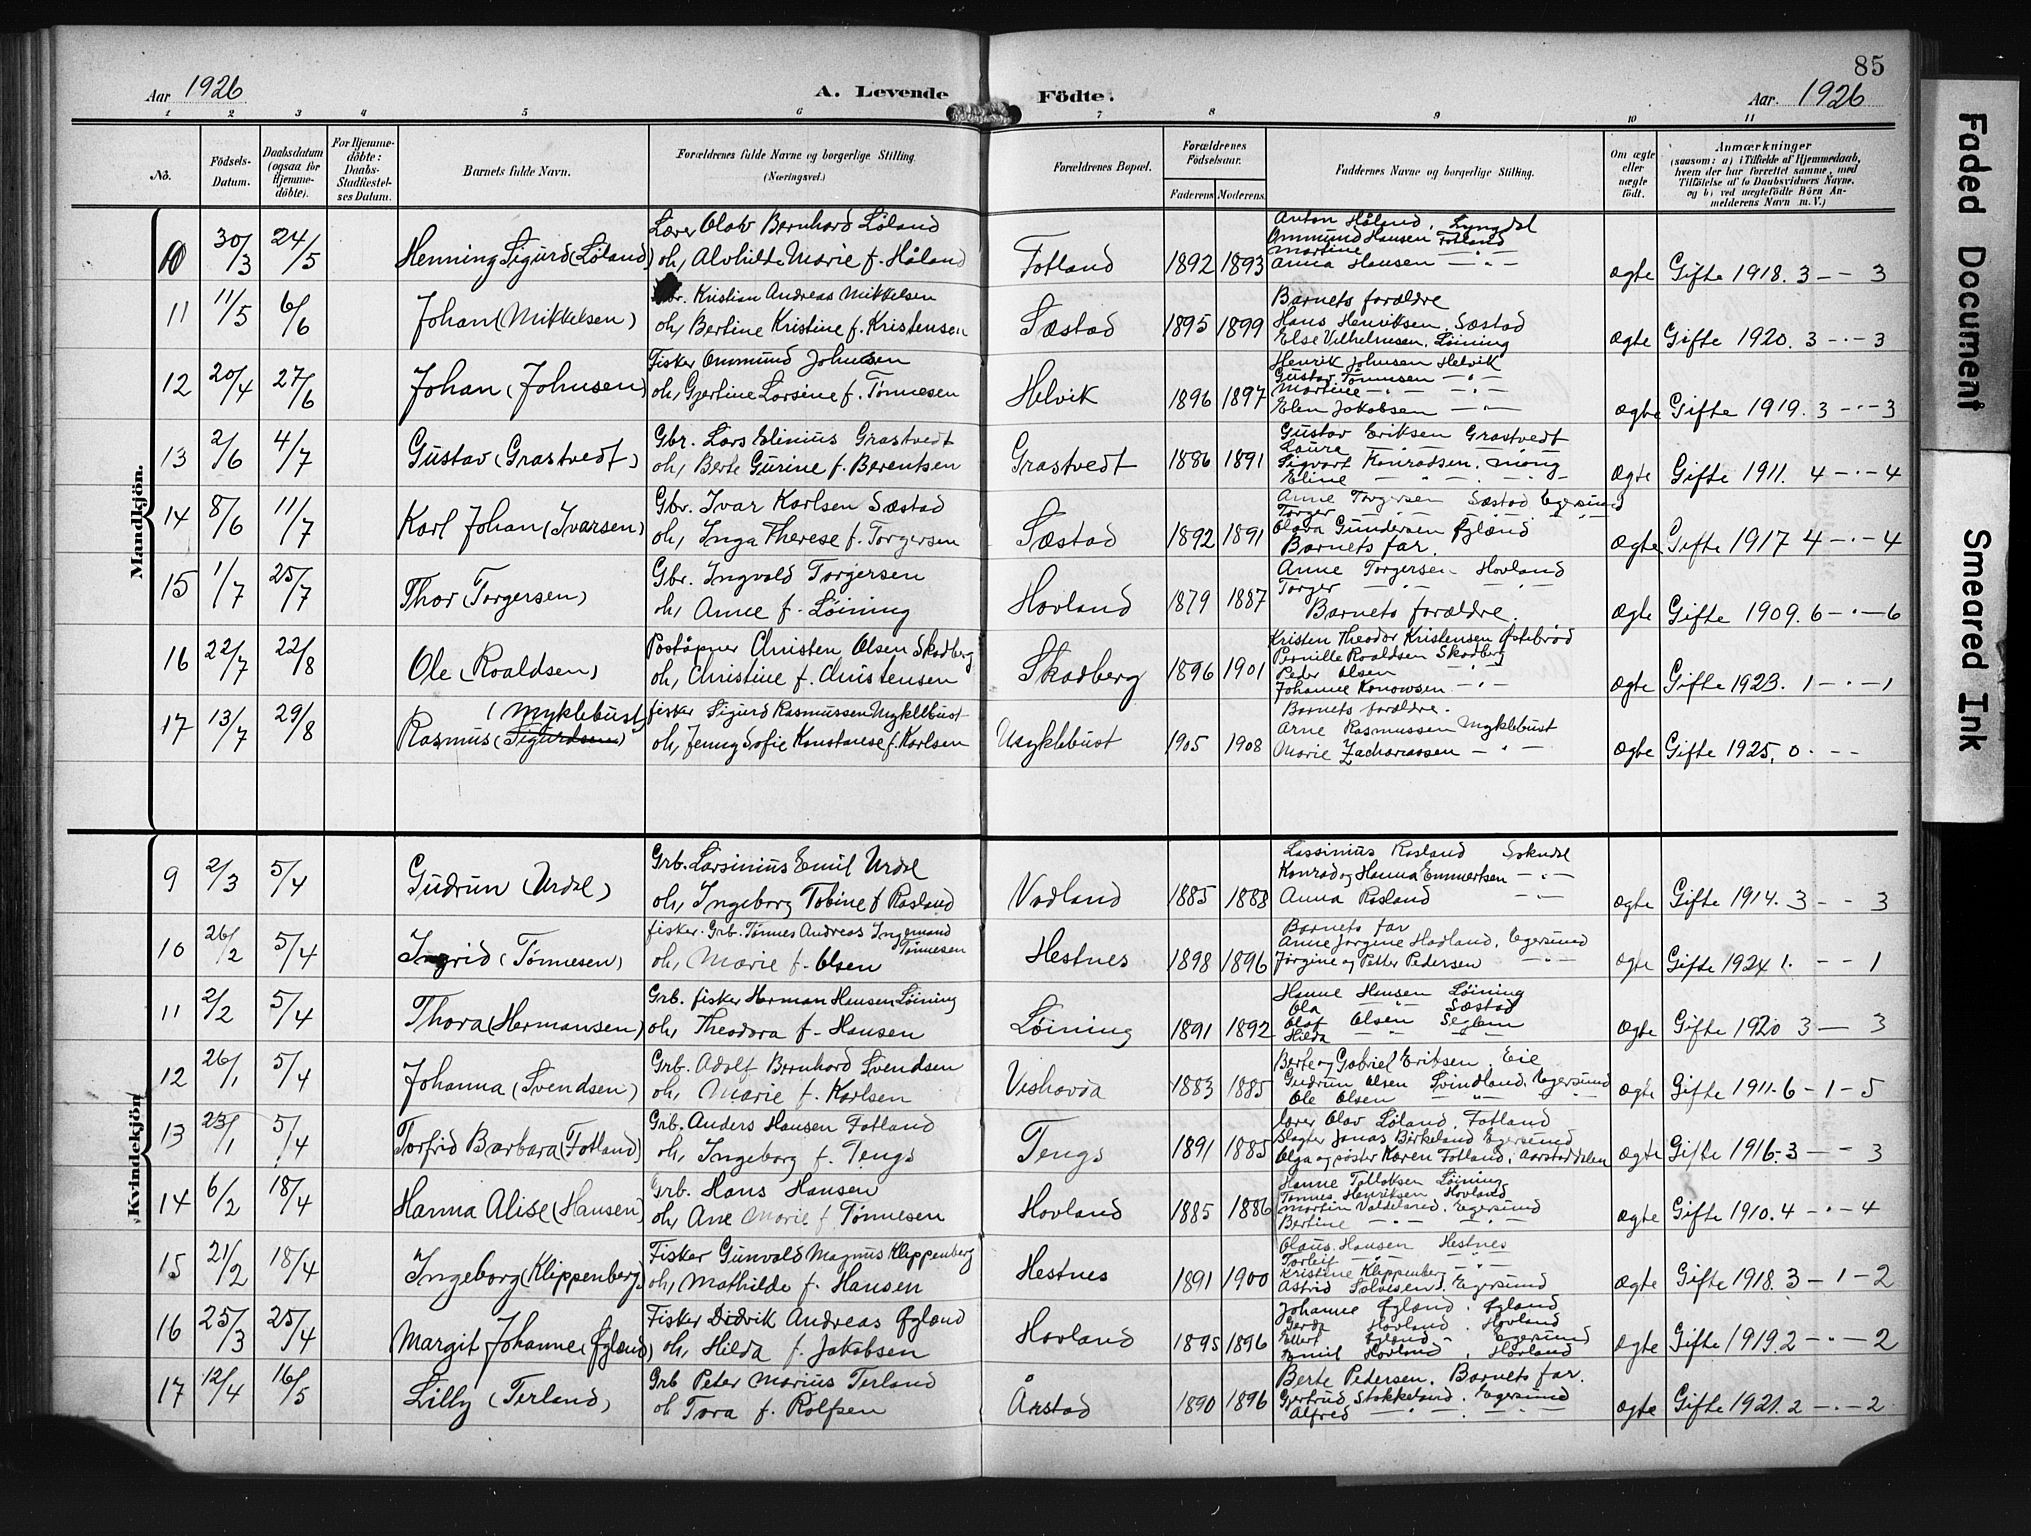 85
Aar 1926
A. Levende Födte.
Aar. 1926
1 2 3 4 5 6 7 8 9 10 11
No.
Födsels-Datum.
Daabsdatum (ogsaa for Hjemmedöbte).
For Hjemmedöbte: Daabs-Stadfæstelses Datum.
Barnets fulde Navn.
Forældrenes fulde Navne og borgerlige Stilling. (Næringsvei.)
Forældrenes Bopæl.
Forældrenes Födselsaar.
Faderens Moderens
Faddernes Navne og borgerlige Stilling.
Om ægte eller uægte födt.
Anmærkninger
(saasom: a) i Tilfælde af Hjemmedaab, hvem der har forrettet samme, med Tilföielse af to Daabsvidners Navne, og b) ved uægtefödte Börn Anmelderens Navn m. V.)
Mandkjön.
10 30/3 24/5 Henning Sigurd (Löland) Lærer Olav Bernhard Löland
oh, Alvhilde Marie f. Håland Fotland 1892 1893
Anton Håland, Lyngdal
Ommund Hansen Fotland
Martine
Anna Hansen — " —
ægte Gifte 1918. 3 — — 3
11 11/5 6/6 Johan (Mikkelsen) Gbr. Kristian Andreas Mikkelsen
oh, Bertine Kristine f. Kristensen Sæstad 1895 1899
Barnets forældre
Hans Henriksen, Sæstad
Else Vilhelmsen, Löining
ægte Gifte 1920. 3 — · — 3
12 20/4 27/6 Johan (Johnsen) Fisker Ommund Johnsen
oh, Gjertine Larsine f. Tönnesen Helvik 1896 1897
Henrik Johnsen Helvik
Gustav Tönnesen — " —
Martine — " — — " —
Elen Jakobsen — " —
ægte Gifte 1919. 3 — · — 3
13 2/6 4/7 Gustav (Grastvedt) Gbr. Lars Elinius Grastvedt
oh, Berte Gurine f. Berentsen Grastvedt 1886 1891
Gustav Eriksen Grastvedt
Laura — " —
Sigvart Konradsen, Mong
Eline — " —
ægte Gifte 1911. 4 — · — 4
14 8/6 11/7 Karl Johan (Ivarsen) Gbr. Ivar Karlsen Sæstad
oh, Inga Therese f. Torgersen Sæstad 1892 1891
Anne Torgersen Sæstad Egersund
Torger — " —
Olava Gundersen Øgland
Barnets far.
ægte Gifte 1917 4 — · — 4
15 1/7 25/7 Thor (Torgersen) Gbr. Ingvald Torgersen
oh, Anne f. Löining Hovland 1879 1887
Anne Torgersen Hovland
Torger — " —
Barnets forældre.
ægte Gifte 1909. 6 — · — 6
16 22/7 22/8 Ole (Roaldsen) Poståpner Christen Olsen Skadberg
oh, Christine f. Christensen Skadberg 1896 1901
Kristen Theodor Kristensen Østebrød
Pernille Roaldsen Skadberg
Peder Olsen
Johanne Konowsen — " —
ægte Gifte 1923. 1 — · — 1
17 13/7 29/8 Rasmus (Sigurdsen) (Myklebust) fisker Sigurd Rasmussen Myklebust
oh, Jenny Sofie Konstanse f. Karlsen Myklebust 1905 1908
Barnets forældre.
Arne Rasmussen Myklebust
Marie Zachariassen — " —
ægte Gifte 1925. 0 — · — —
Kvindekjön
9 2/3 5/4 Gudrun (Urdal) Grb. Larsinius Emil Urdal
oh, Ingeborg Tobine f Rasland Vadland 1885 1888
Lassinius Rasland Sokndal
Konrad og Hanna Emmertsen — " —
Anna Rasland — " —
ægte Gifte 1914. 3 — — 3
10 26/2 5/4 Ingrid (Tönnesen) fisker. Grb. Tönnes Andreas Ingemand Tönnesen
oh, Marie f. Olsen Hestnes 1898 1896
Barnets far
Anne Jørgine Hadland, Egersund
Jørgine og Petter Pedersen — " —
ægte Gifte 1924 1. — — 1
11 2/2 5/4 Thora (Hermansen) Grb. fisker Herman Hansen Löining
oh, Theodora f. Hansen Löining 1891 1892
Hanne Hansen Löining
Ola — " — Sæstad
Olaf Olsen Seglem
Hilda — " —
ægte Gifte 1920 3 — 3
12 26/1 5/4 Johanna (Svendsen) Grb. Adolf Bernhard Svendsen
oh, Marie f. Karlsen Veshovda 1883 1885
Berte og Gabriel Eriksen, Eie
Gudrun Olsen Svindland, Egersund
Ole Olsen — " —
ægte Gifte 1911. 6 — 1 — 5
13 23/1 5/4 Torfrid Barbara (Fotland) Grb. Anders Hansen Fotland
oh, Ingeborg f. Tengs Tengs 1891 1885
Lærer Olav Löland, Fotland
Slagter Jonas Birkeland Egersund
Olga og søster Karen Fotland, Aarstaddalen
ægte Gifte 1916. 3 — — 3
14 6/2 18/4 Hanna Alise (Hansen) Grb. Hans Hansen
oh, Ane Marie f. Tönnesen Hovland 1885 1886
Hanne Tollaksen Löining
Tönnes Henriksen Hovland
Martin Valdeland, Egersund
Bertine — " — — " —
ægte Gifte 1910. 4 — · — 4
15 21/2 18/4 Ingeborg (Klippenberg) Fisker Gunvald Magnus Klippenberg
oh, Mathilde f. Hansen Hestnes 1891 1900
Olaus Hansen Hestnes
Torleif — " —
Kristine Klippenberg — " —
Astrid Salvesen. Egersund
ægte Gifte 1918. 3 — 1 — 2
16 25/3 25/4 Margit Johanne (Øgland) Fisker Didrik Andreas Øgland
oh, Hilda f. Jakobsen Hovland 1895 1896
Johanne Øgland, Øgland
Gerda Hovland, Hovland
Ellert Øgland, Egersund
Emil Hovland, Hovland
ægte Gifte 1919. 2 — · — 2
17 12/4 16/5 Lilly (Terland) Grb Peter Marius Terland
oh Tora f. Rolfsen Årstad 1890 1896
Berte Pedersen. Barnets far.
Gjertrud Stokkeland. Egersund
Alfred — " — — " —
ægte Gifte 1921. 2 — · — 2
Faded Document
Smeared Ink